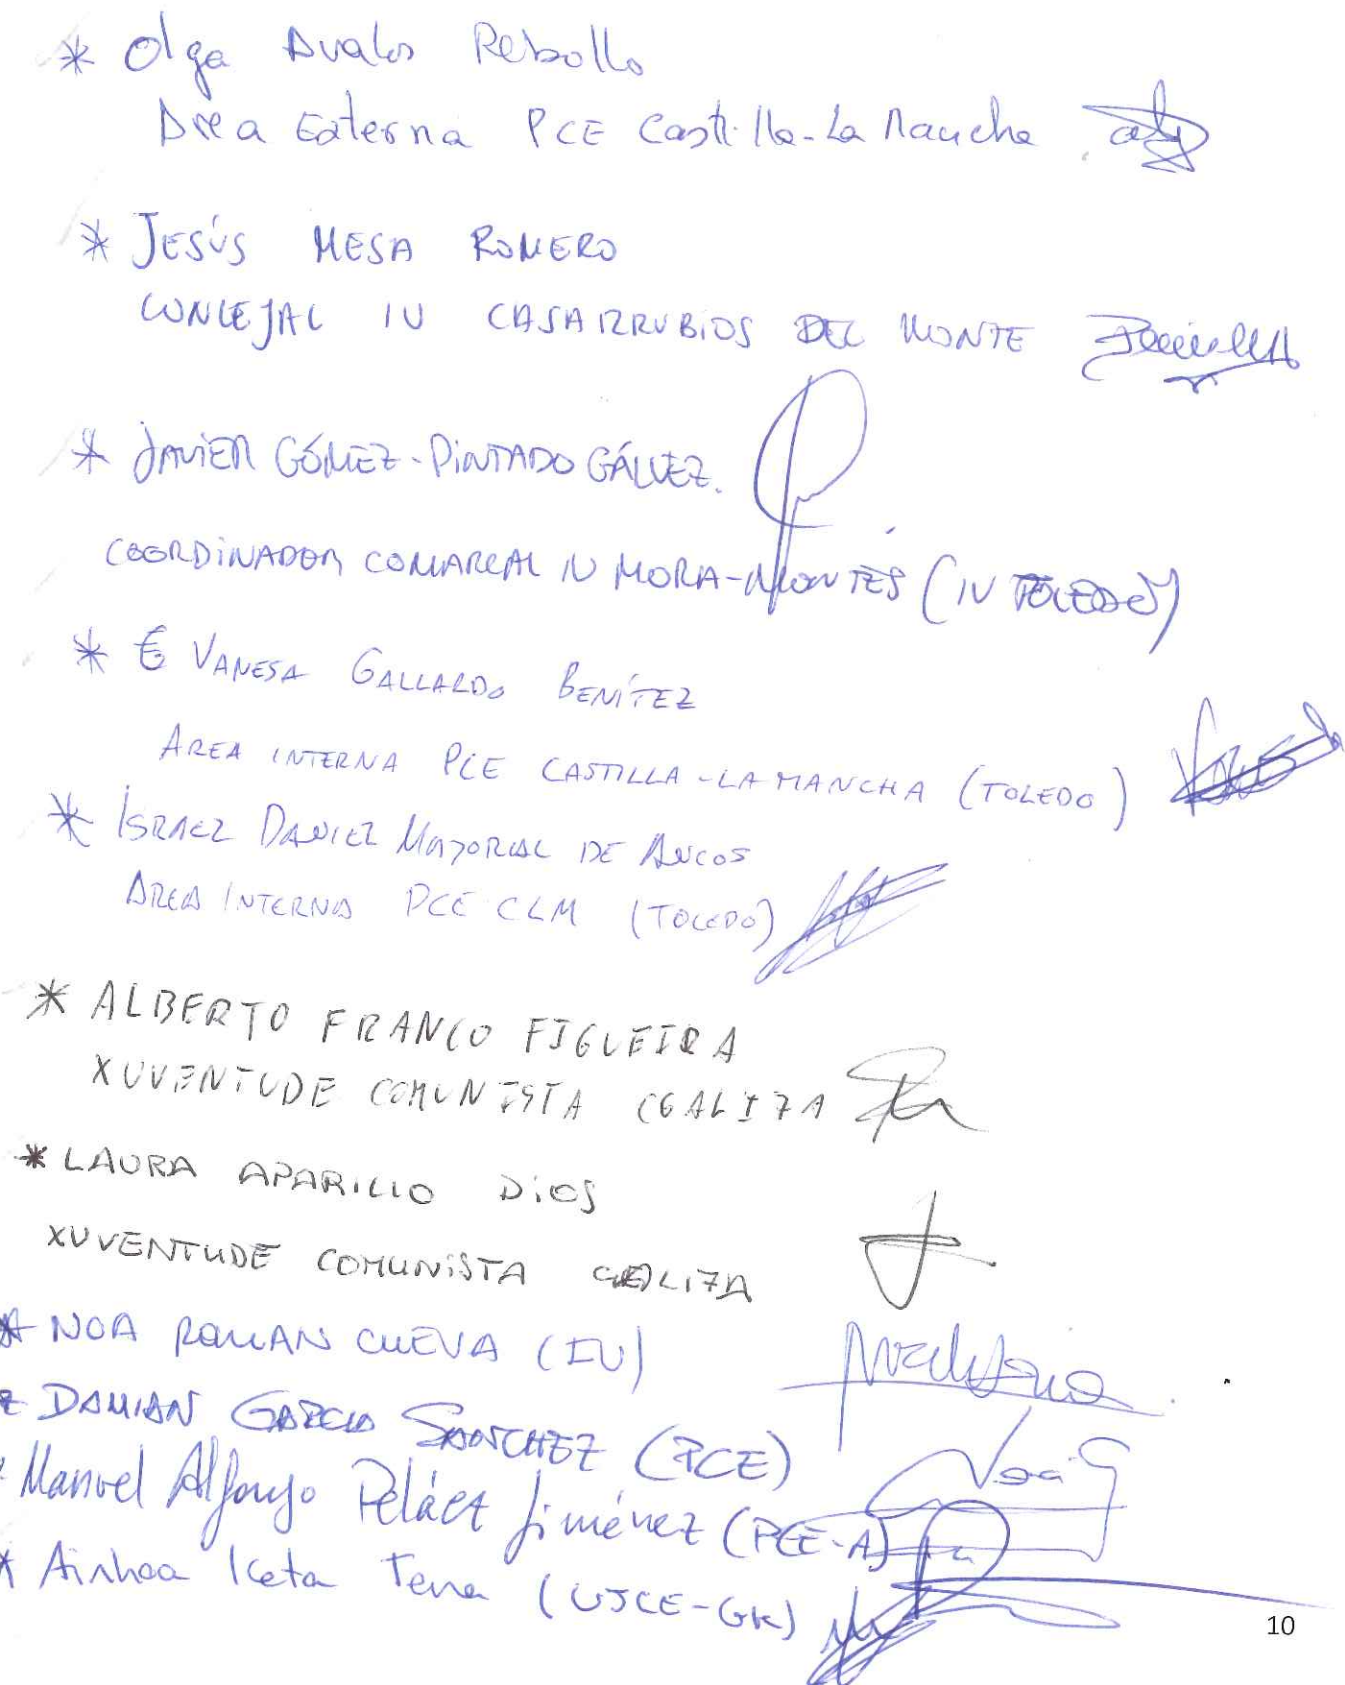 * Olga Avalos Rebollo
Area Externa PCE Castilla-La Mancha
* JESÚS MESA ROMERO
CONCEJAL IU CASARRUBIOS DEL MONTE
* JAVIER GÓMEZ-PINTADO GÁLVEZ.
COORDINADOR COMARCAL IU MORA-MONTES (IU TOLEDO)
* VANESA GALLARDO BENÍTEZ
AREA INTERNA PCE CASTILLA-LA MANCHA (TOLEDO)
* ISRAEL DANIEL MAYORAL DE ANCOS
AREA INTERNA PCE CLM (TOLEDO)
* ALBERTO FRANCO FIGUEIRA
XUVENTUDE COMUNISTA GALIZA
* LAURA APARICIO DIOS
XUVENTUDE COMUNISTA GALIZA
* NOA ROMAN CUEVA (IU)
* DAMIAN GARCIA SANCHEZ (PCE)
* Manuel Alfonso Peláez Jiménez (PCE-A)
* Ainhoa Iceta Tena (UJCE-GK)
10